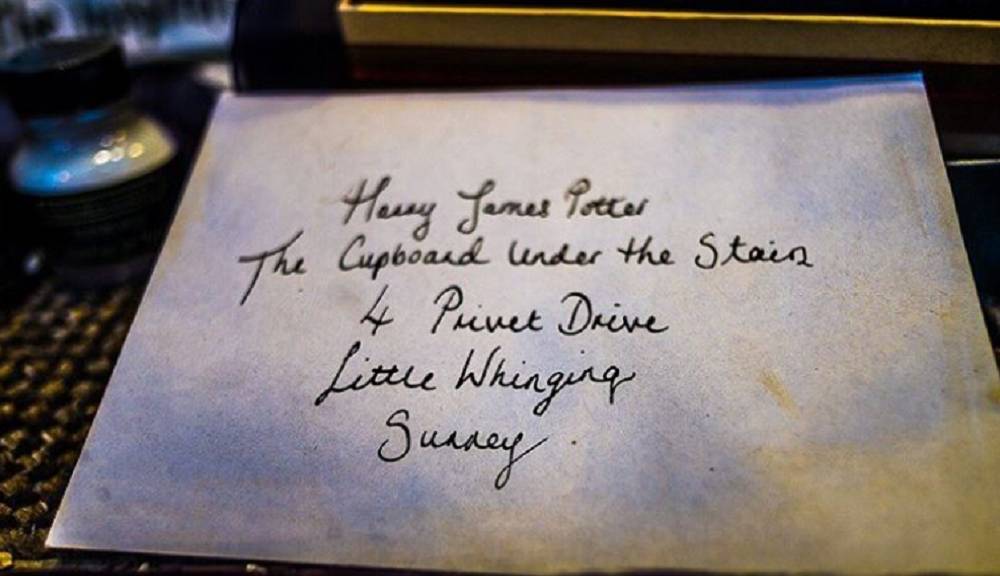 Harry James Potter
The Cupboard Under the Stairs
4 Privet Drive
Little Whinging
Surrey